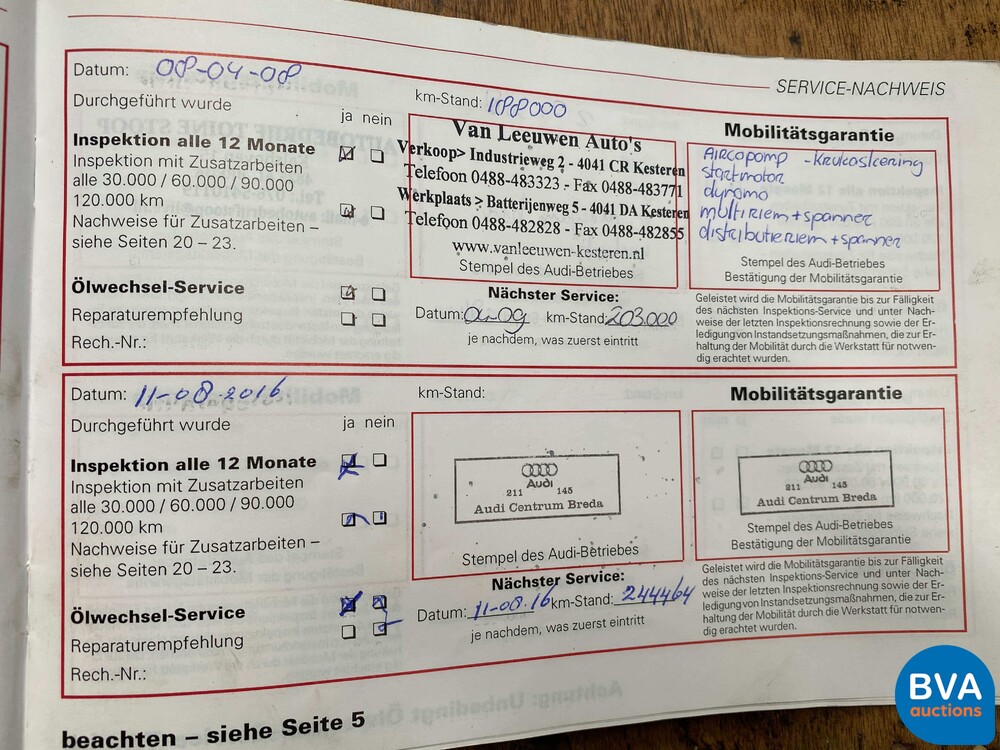 SERVICE-NACHWEIS
Datum: 08-04-08
Durchgeführt wurde
ja nein
Inspektion alle 12 Monate
Inspektion mit Zusatzarbeiten
alle 30.000 / 60.000 / 90.000
120.000 km
Nachweise für Zusatzarbeiten –
siehe Seiten 20 – 23.
Ölwechsel-Service
Reparaturempfehlung
Rech.-Nr.:
km-Stand: 188000
Van Leeuwen Auto's
Verkoop> Industrieweg 2 - 4041 CR Kesteren
Telefoon 0488-483323 - Fax 0488-483771
Werkplaats > Batterijenweg 5 - 4041 DA Kesteren
Telefoon 0488-482828 - Fax 0488-482855
www.vanleeuwen-kesteren.nl
Stempel des Audi-Betriebes
Nächster Service:
Datum: 04-09 km-Stand: 203.000
je nachdem, was zuerst eintritt
Mobilitätsgarantie
Aircopomp -
startmotor
dynamo
multiriem + spanner
distributieriem + spanner
Stempel des Audi-Betriebes
Bestätigung der Mobilitätsgarantie
Geleistet wird die Mobilitätsgarantie bis zur Fälligkeit
des nächsten Inspektions-Service und unter Nach-
weise der letzten Inspektionsrechnung sowie der Er-
ledigung von Instandsetzungsmaßnahmen, die zur Er-
haltung der Mobilität durch die Werkstatt für notwen-
dig erachtet wurden.
Datum: 11-08-2016
Durchgeführt wurde
ja nein
Inspektion alle 12 Monate
Inspektion mit Zusatzarbeiten
alle 30.000 / 60.000 / 90.000
120.000 km
Nachweise für Zusatzarbeiten –
siehe Seiten 20 – 23.
Ölwechsel-Service
Reparaturempfehlung
Rech.-Nr.:
km-Stand:
Audi
211 145
Audi Centrum Breda
Stempel des Audi-Betriebes
Nächster Service:
Datum: 11-08.16 km-Stand: 244464
je nachdem, was zuerst eintritt
Mobilitätsgarantie
Audi
211 145
Audi Centrum Breda
Stempel des Audi-Betriebes
Bestätigung der Mobilitätsgarantie
Geleistet wird die Mobilitätsgarantie bis zur Fälligkeit
des nächsten Inspektions-Service und unter Nach-
weise der letzten Inspektionsrechnung sowie der Er-
ledigung von Instandsetzungsmaßnahmen, die zur Er-
haltung der Mobilität durch die Werkstatt für notwen-
dig erachtet wurden.
beachten – siehe Seite 5
BVA
auctions